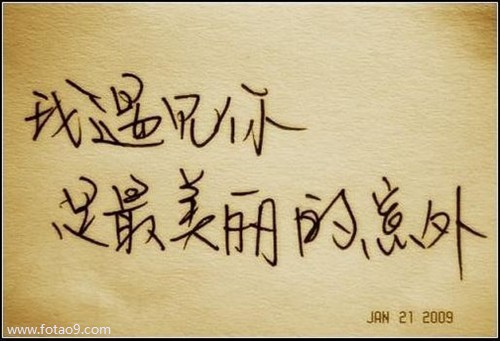 我遇见你
是最美丽的意外
JAN 21 2009
www.fotao9.com